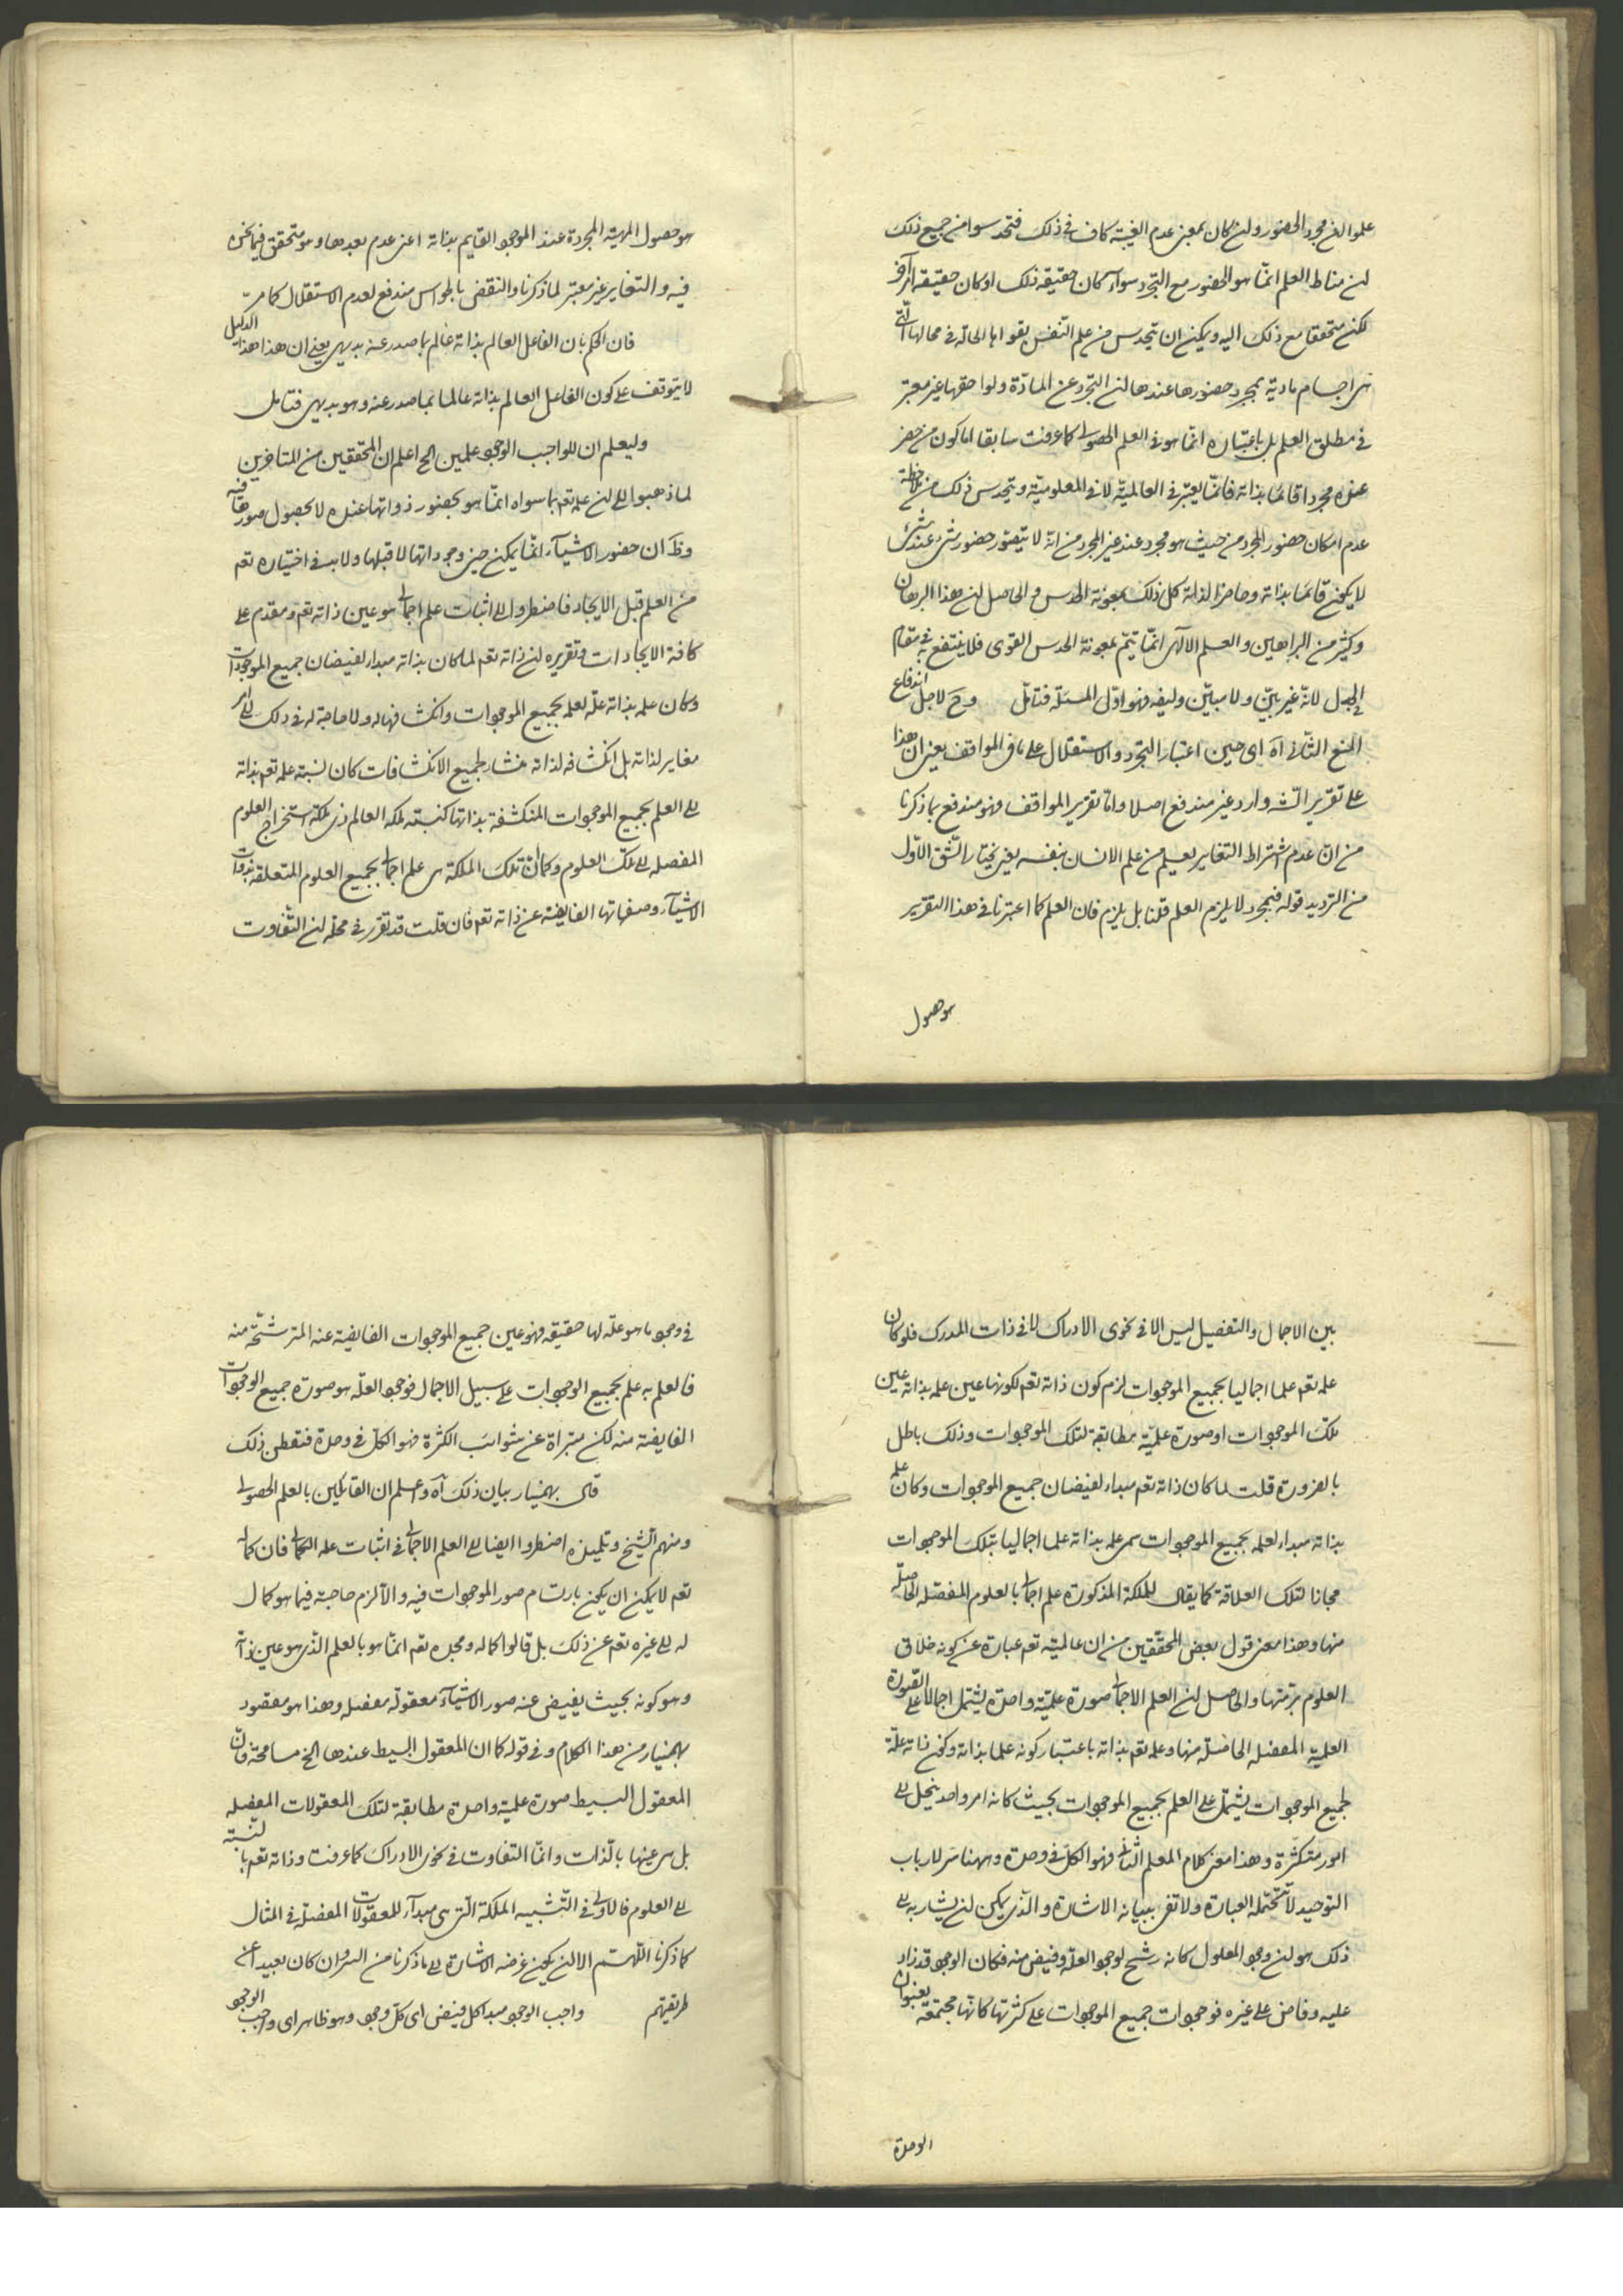 علموا ان مجرد الحضور ولن كان بمعنى عدم الغيبة كاف فى ذلك فتحدسوا من جميع ذلك
لن مناط العلم انما هو الحضور مع التجرد سواء كان حقيقة ذلك او كان حقيقة امر آخر
لكن متحققا مع ذلك اليه ويمكن ان يتحدس من علم النفس بقواها الحالة فى محالها التى
هى اجسام مادية بمجرد حضورها عندها لن التجرد عن المادة ولواحقها غير معتبر
فى مطلق العلم بل باعتباره انما هو فى العلم الحصولى كما عرفت سابقا اما كون من حضر
عنده مجردا قائما بذاته فانما يعتبر فى العالمية لا فى المعلومية ويتحدس ذلك من ملاحظة
عدم امكان حضور المجرد من حيث هو مجرد عند غير المجرد من انه لا يتصور حضور شئ عند شئ
لا يكون قائما بذاته وحاضرا لذاته كل ذلك بمعونة الحدس والحاصل لن هذا البرهان
وكثير من البراهين والعلم الالهى انما يتم بمعونة الحدس القوى فلا ينتفع به فى مقام
الجدل لانه غير بين ولا مبين وليفه فهو اول المسئلة فتامل وح لاجل اندفاع
المنع الثانى اه اى حين اعتبار التجرد والاستقلال على ما فى المواقف يعنى ان هذا
على تقرير الش وارد غير مندفع اصلا واما تقرير المواقف فهو مندفع بما ذكرنا
من ان عدم اشتراط التغاير يعلم من علم الانسان بنفسه يعنى يختار الشق الاول
من الترديد قوله فبمجرد لا يلزم العلم قلنا بل يلزم فان العلم كما اعتبرنا فى هذا التقرير
هو حصول
هو حصول المهية المجردة عند الموجو القايم بذاته اعنى عدم بعدها وهو متحقق فيما نحن
فيه و التغاير غير معتبر لما ذكرنا والنقض بالحواس مندفع لعدم الاستقلال كما مر
فان الحكم بان الفاعل العالم بذاته عالم بما صدر عنه بديهى يعنى ان هذا هذا الدليل
لا يتوقف على كون الفاعل العالم بذاته عالما بما صدر عنه وهو بديهى فتامل
وليعلم ان للواجب الوجو علمين الخ اعلم ان المحققين من المتاخرين
لما ذهبوا الى لن علمه تع بما سواه انما هو بحضور ذواتها عنده لا بحصول صورها فيه
وظ ان حضور الاشياء انما يمكن حين وجوداتها لا قبلها ولا بد فى اختياره تع
من العلم قبل الايجاد فاضطروا الى اثبات علم اجمالى هو عين ذاته تع ومقدم على
كافة الايجادات وتقريره لن ذاته تع لما كان بذاته مبدا لفيضان جميع الموجودات
وكان علمه بذاته علة لعلمه بجميع الموجوات وانكشافها له ولا حاجة له فى ذلك الى امر
مغاير لذاته بل انكشافه لذاته منشا لجميع الانكشافات كان نسبة علمه تع بذاته
الى العلم بجميع الموجوات المنكشفة بذاتها كنسبة ملكة العالم ذى ملكة استخراج العلوم
المفصله الى تلك العلوم وكما ان تلك الملكة هى علم اجمالى بجميع العلوم المتعلقة بذوات
الاشياء وصفاتها الفايضة عن ذاته تع فان قلت قد تقرر فى محله لن التفاوت
بين الاجمال والتفصيل ليس الا فى نحوى الادراك لا فى ذات المدرك فلو كان
علمه تع علما اجماليا بجميع الموجوات لزم كون ذاته تع لكونها عين علمه بذاته عين
تلك الموجوات او صورة علمية مطابقة لتلك الموجوات وذلك باطل
بالضرورة قلت لما كان ذاته تع مبدا لفيضان جميع الموجوات وكان علمه
بذاته مبدا لعلمه بجميع الموجوات سمى علمه بذاته علما اجماليا بتلك الموجوات
مجازا لتلك العلاقة كما يقال للملكة المذكورة علم اجمالى بالعلوم المفصله الحاصلة
منها وهذا معنى قول بعض المحققين من ان عالميته تع عبارة عن كونه خلاق
العلوم برمتها والحاصل لن العلم الاجمالى صورة علمية واحدة يشتمل اجمالا على الصورة
العلمية المفصله الحاصلة منها وعلمه تع بذاته باعتبار كونه علما بذاته وكون ذاته علة
لجميع الموجوات يشتمل على العلم بجميع الموجوات بحيث كانه امر واحد ينحل الى
امور متكثرة وهذا معنى كلام المعلم الثانى فهو الكل فى وحدة وههنا سر لارباب
التوحيد لا تتحمله العبارة ولا تفى ببيانه الاشارة والذى يمكن لن يشار به الى
ذلك هو لن وجو المعلول كانه رشح لوجو العلة وفيض منه فكان الوجو قد زاد
عليه وفاض على غيره فوجوات جميع الموجوات على كثرتها كانها مجتمعة بعنوان
الوحدة
فى وجو ما هو علة لها حقيقه فهو عين جميع الموجوات الفايضة عنه المترشحة منه
فالعلم به علم بجميع الوجوات على سبيل الاجمال فوجو العلة هو صورة جميع الوجوات
الفايضة منه لكن مبراة عن شوائب الكثرة فهو الكل فى وحدة فتفطن ذلك
قال بهمنيار بيان ذلك آه واعلم ان القايلين بالعلم الحصولى
ومنهم الشيخ وتلميذه اضطروا ايضا الى العلم الاجمالى فى اثبات علمه الكمالى فان كماله
تع لا يمكن ان يكون بارتسام صور الموجوات فيه والا لزم حاجته فيما هو كمال
له الى غيره تع عن ذلك بل قالوا كماله ومجده تع انما هو بالعلم الذى هو عين ذاته
وهو كونه بحيث يفيض عنه صور الاشياء معقولة مفصله وهذا هو مقصود
بهمنيار من هذا الكلام وفى قوله كما ان المعقول البسيط عندها الخ مسامحة فان
المعقول البسيط صورة علمية واحدة مطابقة لتلك المعقولات المفصله
بل هى عينها بالذات وانما التفاوت فى نحوى الادراك كما عرفت وذاته تع بالنسبة
الى العلوم فالاولى فى التشبيه الملكة التى هى مبدا للمعقولات المفصلة فى المثال
كما ذكرنا اللهم الا لن يكون غرضه الاشارة الى ما ذكرنا من السر وان كان بعيدا عن
طريقتهم واجب الوجو مبدا كل فيض اى كل وجو وهو ظاهر اى واجب الوجو